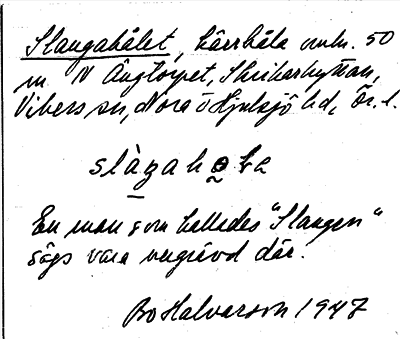 Slangahålet, kärrhåla omkr. 50
m N Ängtorpet, Skrikarhyttan,
Vikers sn, Nora o Hjulsjö hd, Ör. l.
slàgahole
En man som kallades "Slangen"
sägs vara nergrävd där.
Bo Halvarson 1947